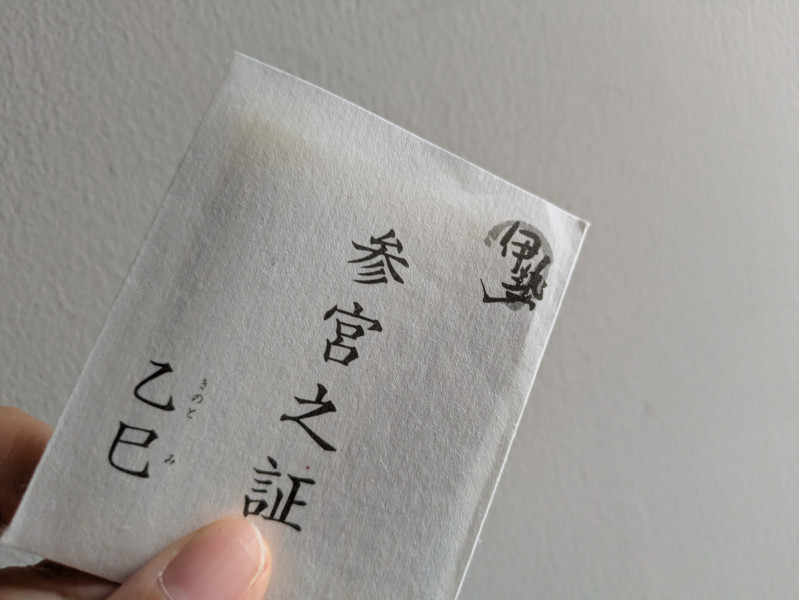 伊勢
参宮之証
乙巳
きのと み